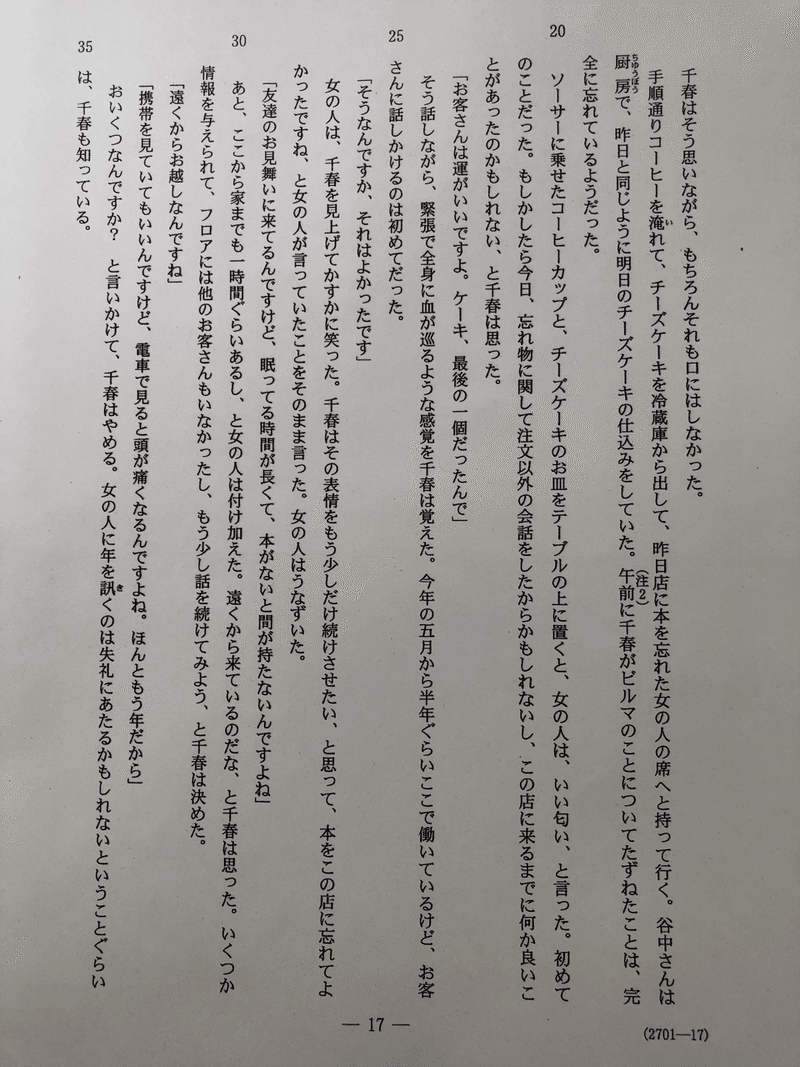 千春はそう思いながら、もちろんそれも口にはしなかった。
手順通りコーヒーを淹れて、チーズケーキを冷蔵庫から出して、昨日店に本を忘れた女の人の席へと持って行く。谷中さんは
い
(注2)
厨房で、昨日と同じように明日のチーズケーキの仕込みをしていた。午前に千春がビルマのことについてたずねたことは、完
ちゅうぼう
全に忘れているようだった。
20
ソーサーに乗せたコーヒーカップと、チーズケーキのお皿をテーブルの上に置くと、女の人は、いい匂い、と言った。初めて
のことだった。もしかしたら今日、忘れ物に関して注文以外の会話をしたからかもしれないし、この店に来るまでに何か良いこ
とがあったのかもしれない、と千春は思った。
「お客さんは運がいいですよ。ケーキ、最後の一個だったんで」
そう話しながら、緊張で全身に血が巡るような感覚を千春は覚えた。今年の五月から半年ぐらいここで働いているけど、お客
25
さんに話しかけるのは初めてだった。
「そうなんですか、それはよかったです」
女の人は、千春を見上げてかすかに笑った。千春はその表情をもう少しだけ続けさせたい、と思って、本をこの店に忘れてよ
かったですね、と女の人が言っていたことをそのまま言った。女の人はうなずいた。
「友達のお見舞いに来てるんですけど、眠ってる時間が長くて、本がないと間が持たないんですよね」
30
あと、ここから家までも一時間ぐらいあるし、と女の人は付け加えた。遠くから来ているのだな、と千春は思った。いくつか
情報を与えられて、フロアには他のお客さんもいなかったし、もう少し話を続けてみよう、と千春は決めた。
「遠くからお越しなんですね」
「携帯を見ていてもいいんですけど、電車で見ると頭が痛くなるんですよね。ほんともう年だから」
おいくつなんですか? と言いかけて、千春はやめる。女の人に年を訊くのは失礼にあたるかもしれないということぐらい
き
35
は、千春も知っている。
— 17 —
(2701—17)